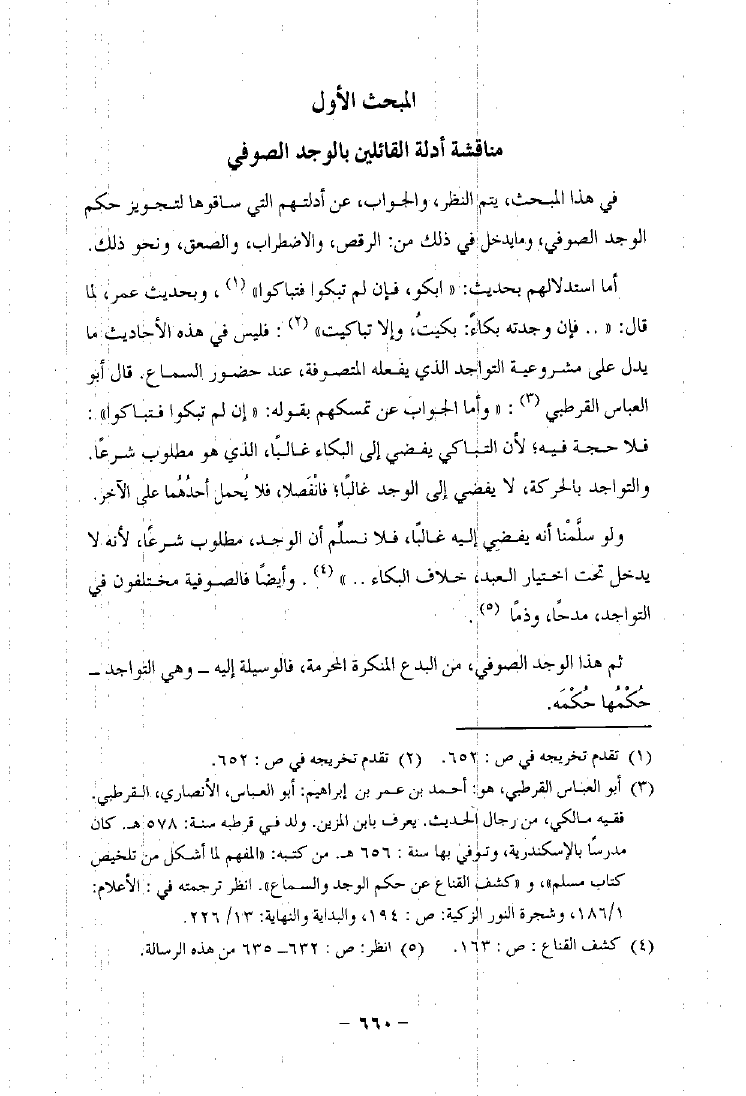 المبحث الأول
مناقشة أدلة القائلين بالوجد الصوفي
في هذا المبحث، يتم النظر، والجواب، عن أدلتهم التي ساقوها لتجويز حكم
الوجد الصوفي، ومايدخل في ذلك من: الرقص، والاضطراب، والصعق، ونحو ذلك.
أما استدلالهم بحديث: « ابكو، فإن لم تبكوا فتباكوا» (١) ، وبحديث عمر، لما
قال: « .. فإن وجدته بكاءً: بكيتُ، وإلا تباكيت» (٢) : فليس في هذه الأحاديث ما
يدل على مشروعية التواجد الذي يفعله المتصوفة، عند حضور السماع. قال أبو
العباس القرطبي (٣) : « وأما الجواب عن تمسكهم بقوله: « إن لم تبكوا فتباكوا» :
فلا حجة فيه؛ لأن التباكي يفضي إلى البكاء غالبًا، الذي هو مطلوب شرعًا.
والتواجد بالحركة، لا يفضي إلى الوجد غالبًا؛ فانْفَصلا، فلا يُحمل أحدُهُما على الآخر.
ولو سلَّمْنا أنه يفضي إليه غالبًا، فلا نسلِّم أن الوجد، مطلوب شرعًا، لأنه لا
يدخل تحت اختيار العبد، خلاف البكاء .. » (٤) . وأيضًا فالصوفية مختلفون في
التواجد، مدحًا، وذمًا (٥) .
ثم هذا الوجد الصوفي، من البدع المنكرة المحرمة، فالوسيلة إليه ــ وهي التواجد ــ
حُكْمُها حُكْمَه.
(١) تقدم تخريجه في ص : ٦٥٢. (٢) تقدم تخريجه في ص : ٦٥٢.
(٣) أبو العباس القرطبي، هو: أحمد بن عمر بن إبراهيم: أبو العباس، الأنصاري، القرطبي.
فقيه مالكي، من رجال الحديث. يعرف بابن المزين. ولد في قرطبه سنة: ٥٧٨ هـ. كان
مدرسًا بالإسكندرية، وتوفي بها سنة : ٦٥٦ هـ. من كتبه: «المفهم لما أشكل من تلخيص
كتاب مسلم»، و «كشف القناع عن حكم الوجد والسماع». انظر ترجمته في : الأعلام:
١٨٦/١، وشجرة النور الزكية: ص : ١٩٤، والبداية والنهاية: ١٣/ ٢٢٦.
(٤) كشف القناع : ص : ١٦٣. (٥) انظر: ص : ٦٣٢ــ ٦٣٥ من هذه الرسالة.
– ٦٦٠ –